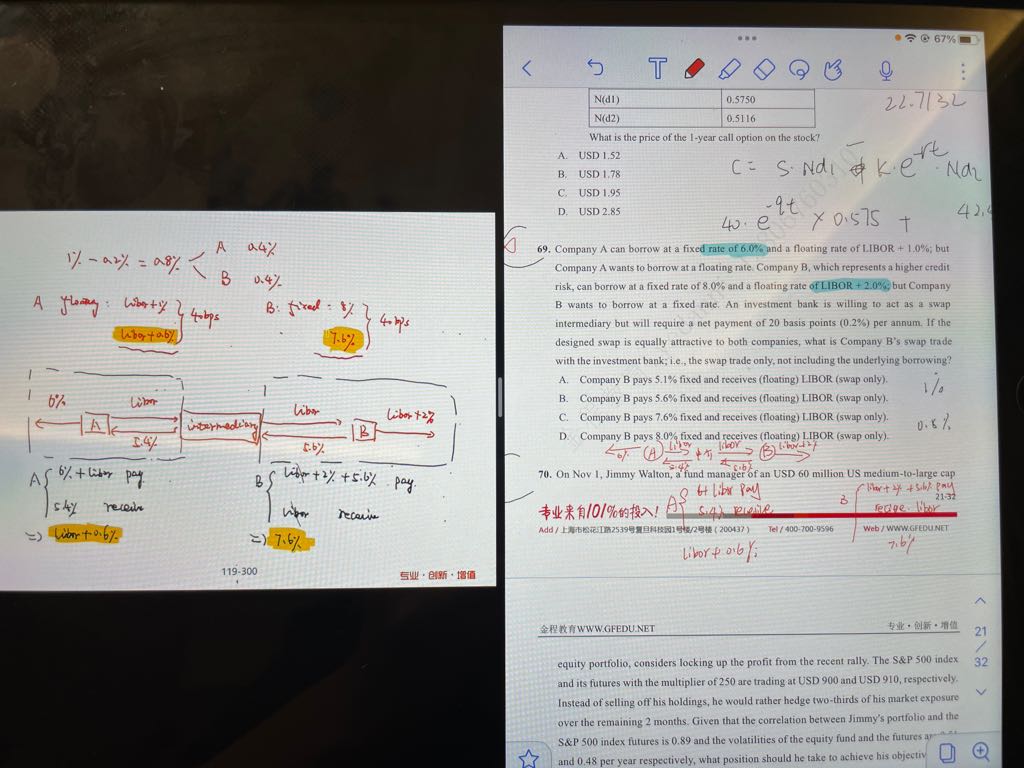 1% - 0.2% = 0.8%
A 0.4%
B 0.4%
A floating: Libor+1%
Libor+0.6%
40bps
B: fixed = 8%
7.6%
40bps
6%
A
Libor
5.4%
intermediary
Libor
5.6%
B
Libor+2%
A
6% + libor pay
5.4% receive
=) Libor+0.6%
B
Libor+2% + 5.6% pay
libor receive
=) 7.6%
119-300
专业·创新·增值
67%
N(d1) 0.5750
N(d2) 0.5116
22.7132
What is the price of the 1-year call option on the stock?
A. USD 1.52
B. USD 1.78
C. USD 1.95
D. USD 2.85
40·e-qt × 0.575 +
69. Company A can borrow at a fixed rate of 6.0% and a floating rate of LIBOR + 1.0%; but
Company A wants to borrow at a floating rate. Company B, which represents a higher credit
risk, can borrow at a fixed rate of 8.0% and a floating rate of LIBOR + 2.0%; but Company
B wants to borrow at a fixed rate. An investment bank is willing to act as a swap
intermediary but will require a net payment of 20 basis points (0.2%) per annum. If the
designed swap is equally attractive to both companies, what is Company B's swap trade
with the investment bank; i.e., the swap trade only, not including the underlying borrowing?
A. Company B pays 5.1% fixed and receives (floating) LIBOR (swap only).
B. Company B pays 5.6% fixed and receives (floating) LIBOR (swap only).
C. Company B pays 7.6% fixed and receives (floating) LIBOR (swap only).
D. Company B pays 8.0% fixed and receives (floating) LIBOR (swap only).
1%
0.8%
6% A Libor 5.4% libor 5.6% B libor+2%
70. On Nov 1, Jimmy Walton, a fund manager of an USD 60 million US medium-to-large cap
21-32
A
6+ libor pay
5.4% receive
libor+0.6%
B
libor+2% + 5.6% pay
receive libor
7.6%
专业来自101%的投入!
Add / 上海市松花江路2539号复旦科技园1号楼/2号楼(200437) Tel / 400-700-9596 Web / WWW.GFEDU.NET
金程教育WWW.GFEDU.NET 专业·创新·增值
21
/
32
equity portfolio, considers locking up the profit from the recent rally. The S&P 500 index
and its futures with the multiplier of 250 are trading at USD 900 and USD 910, respectively.
Instead of selling off his holdings, he would rather hedge two-thirds of his market exposure
over the remaining 2 months. Given that the correlation between Jimmy's portfolio and the
S&P 500 index futures is 0.89 and the volatilities of the equity fund and the futures are
and 0.48 per year respectively, what position should he take to achieve his